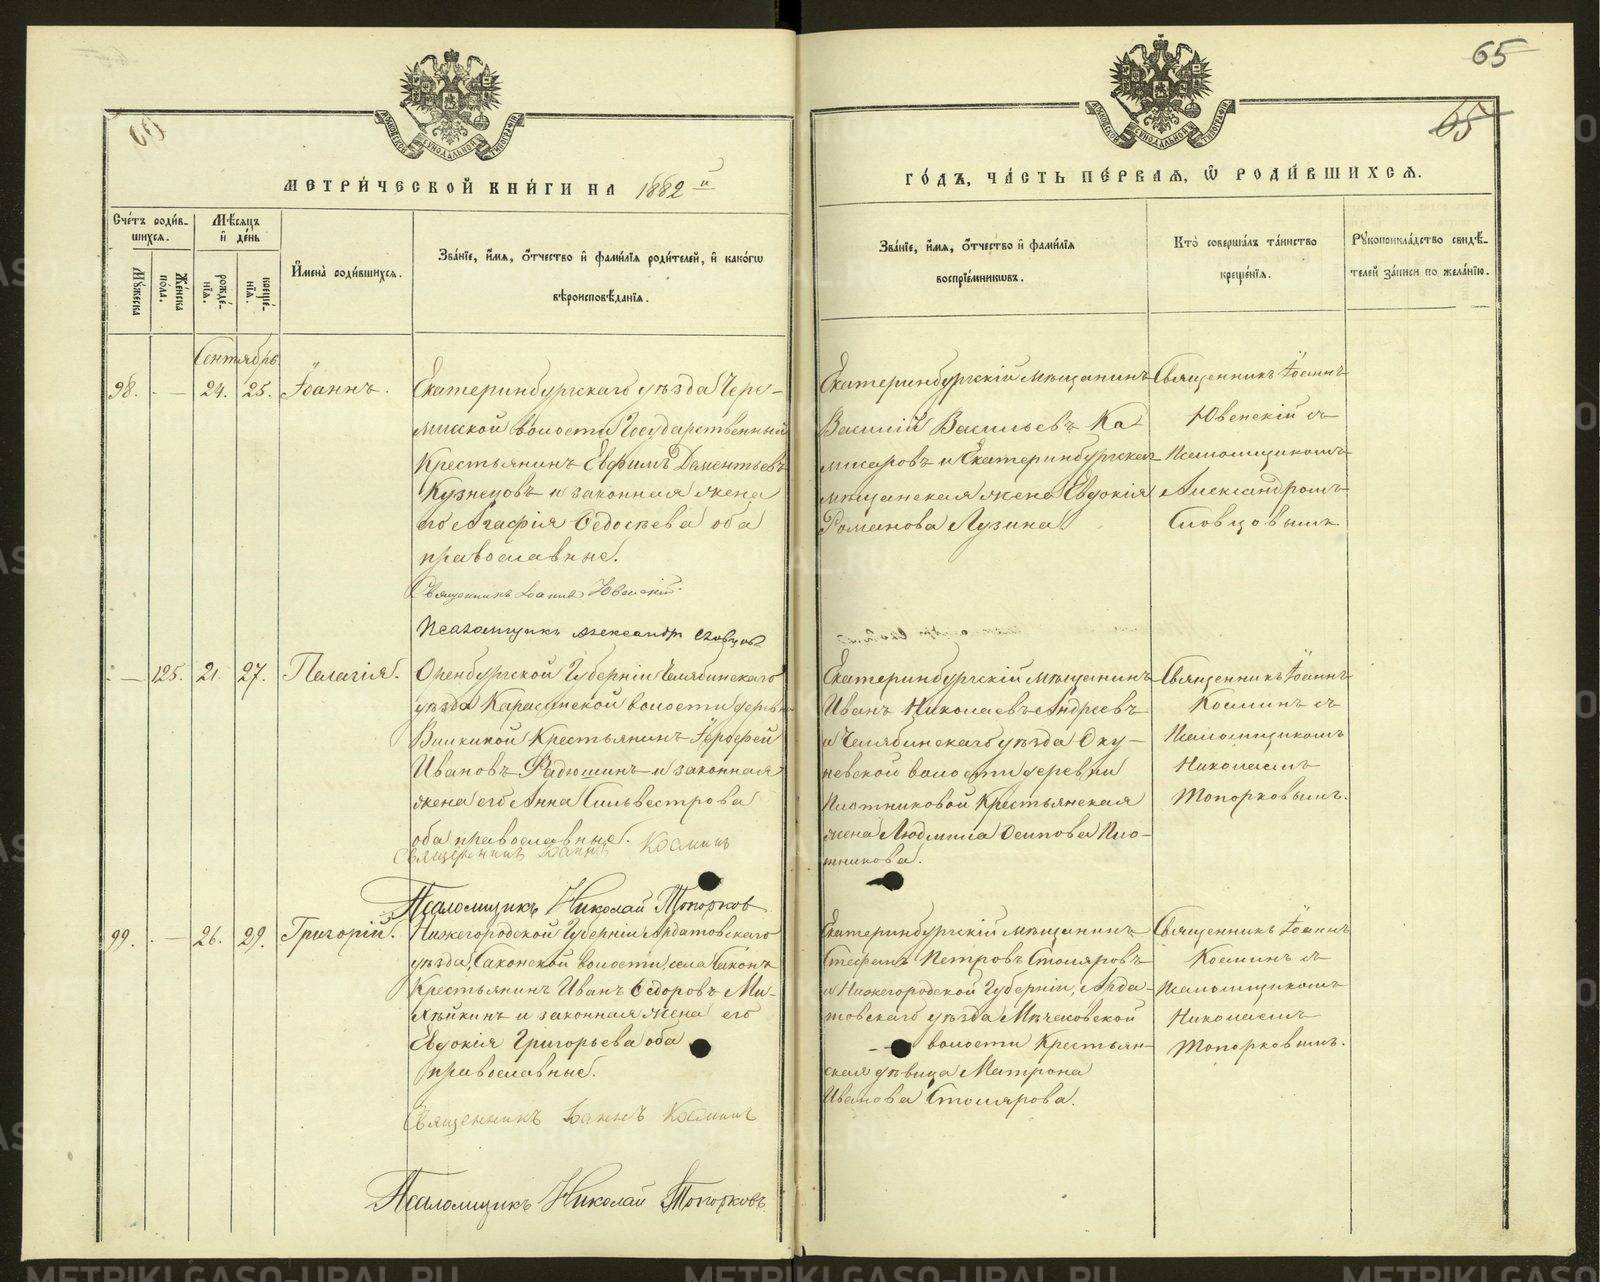 65
65
МЕТРИ́ЧЕСКОЙ КНИ́ГИ НА 1882й
ГО́ДЪ, ЧА́СТЬ ПЕ́РВАѦ, Ѡ РОДИ́ВШИХСѦ.
Сче́тъ роди́в-
шихсѧ.
Мѣ́сѧцъ
и҆ де́нь
Мꙋ́жеска
Же́нска
пола.
рожде́-
нїѧ.
креще́-
нїѧ.
И҆мена̀ роди́вшихсѧ.
Зва́нїе, и҆́мѧ, ѻ҆́тчество и҆ фами́лїѧ роди́телей, и҆ како́гѡ
вѣроисповѣ́данїѧ.
Зва́нїе, и҆́мѧ, ѻ҆́тчество и҆ фами́лїѧ
воспрїе́мникѡвъ.
Кто̀ соверша́лъ та́инство
креще́нїѧ.
Рꙋкоприкла́дство свидѣ́-
телей за́писи по жела́нїю.
Сентябрь
98. - — 24. 25. Іоаннъ.
Екатеринбургскаго уѣзда Чере-
мисской волости Государственный
Крестьянинъ Евфимъ Дементьевъ
Кузнецовъ и законная жена
его Агафія Ѳедосѣева оба
православные.
Священникъ Іоаннъ Ювенскій.
Псаломщикъ Александръ Словцовъ
Екатеринбургскій мѣщанинъ
Василій Васильевъ Ка-
мисаровъ и Екатеринбургская
мѣщанская жена Евдокія
Романова Лузина
Священникъ Іоаннъ
Ювенскій съ
Псаломщикомъ
Александромъ
Словцовымъ
- — 125. 21. 27. Пелагія.
Оренбургской Губерніи Челябинскаго
уѣзда Карасинской волости деревни
Крестьянинъ Іероѳей
Ивановъ Радюшинъ и законная
жена его Анна Сильвестрова
оба православные.
Священникъ Іоаннъ Косминъ
Псаломщикъ Николай Топорков
Екатеринбургскій мѣщанинъ
Иванъ Николаевъ Андреевъ
и Челябинскаго уѣзда Оку-
невской волости деревни
Плотниковой Крестьянская
жена Людмила Осипова Пло-
тникова.
Священникъ Іоаннъ
Косминъ съ
Псаломщикомъ
Николаемъ
Топорковымъ.
99. - — 26. 29. Григорій.
Нижегородской Губерніи Ардатовскаго
уѣзда, Саконской волости, села Саконъ
Крестьянинъ Иванъ Ѳедоровъ Ми-
хѣйкинъ и законная жена его
Евдокія Григорьева оба
православные.
Священникъ Іоаннъ Косминъ
Псаломщикъ Николай Топорковъ
Екатеринбургскій мѣщанинъ
Стефанъ Петровъ Столяровъ
и Нижегородской Губерніи, Арда-
товскаго уѣзда
волости Крестьян-
ская дѣвица Матрона
Иванова Столярова.
Священникъ Іоаннъ
Косминъ съ
Псаломщикомъ
Николаемъ
Топорковымъ.